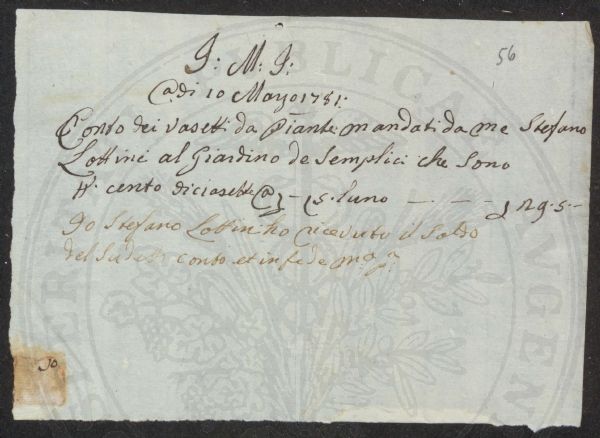 56
J: M: J:
Adi 10 Mayo 1751:
Conto dei vasetti da Piante mandati da me Stefano
Lottini al Giardino de Semplici che Sono
N. cento diciasette @ £ - 5. luno — · — - £ 29. 5 -
Jo Stefano Lottini ho ricevuto il Saldo
del Sudetto conto et in fede m.o p.a
30